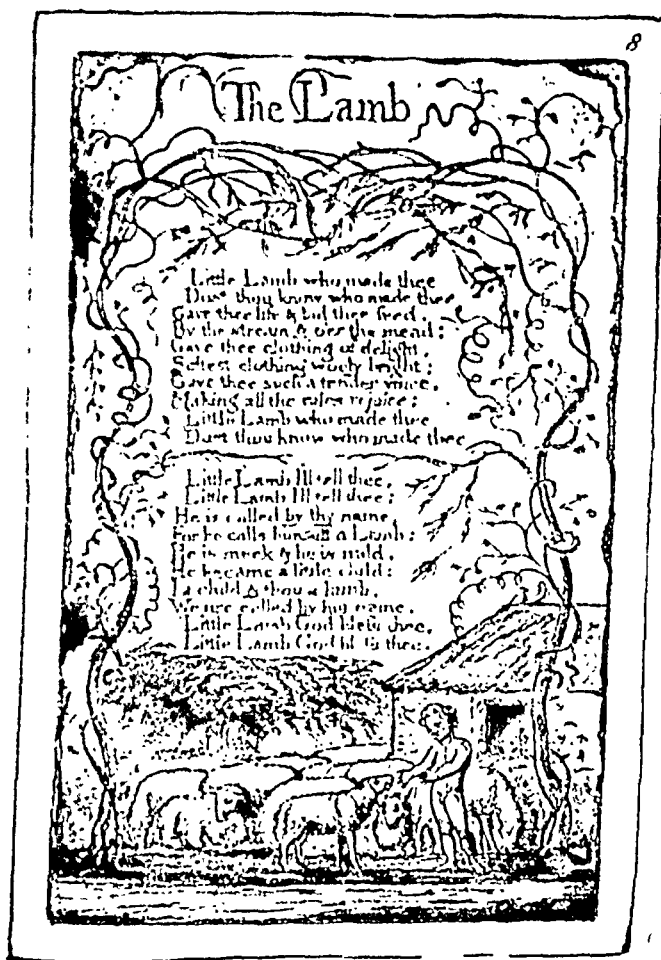 8
The Lamb
Little Lamb who made thee
Dost thou know who made thee
Gave thee life & bid thee feed.
By the stream & o'er the mead;
Gave thee clothing of delight,
Softest clothing wooly bright;
Gave thee such a tender voice,
Making all the vales rejoice;
Little Lamb who made thee
Dost thou know who made thee
Little Lamb I'll tell thee,
Little Lamb I'll tell thee;
He is called by thy name,
For he calls himself a Lamb:
He is meek & he is mild,
He became a little child:
I a child & thou a lamb,
We are called by his name.
Little Lamb God bless thee,
Little Lamb God bless thee.